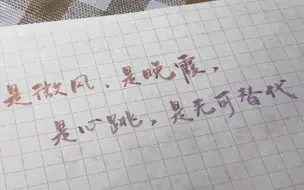 是微风、是晚霞，
是心跳，是无可替代